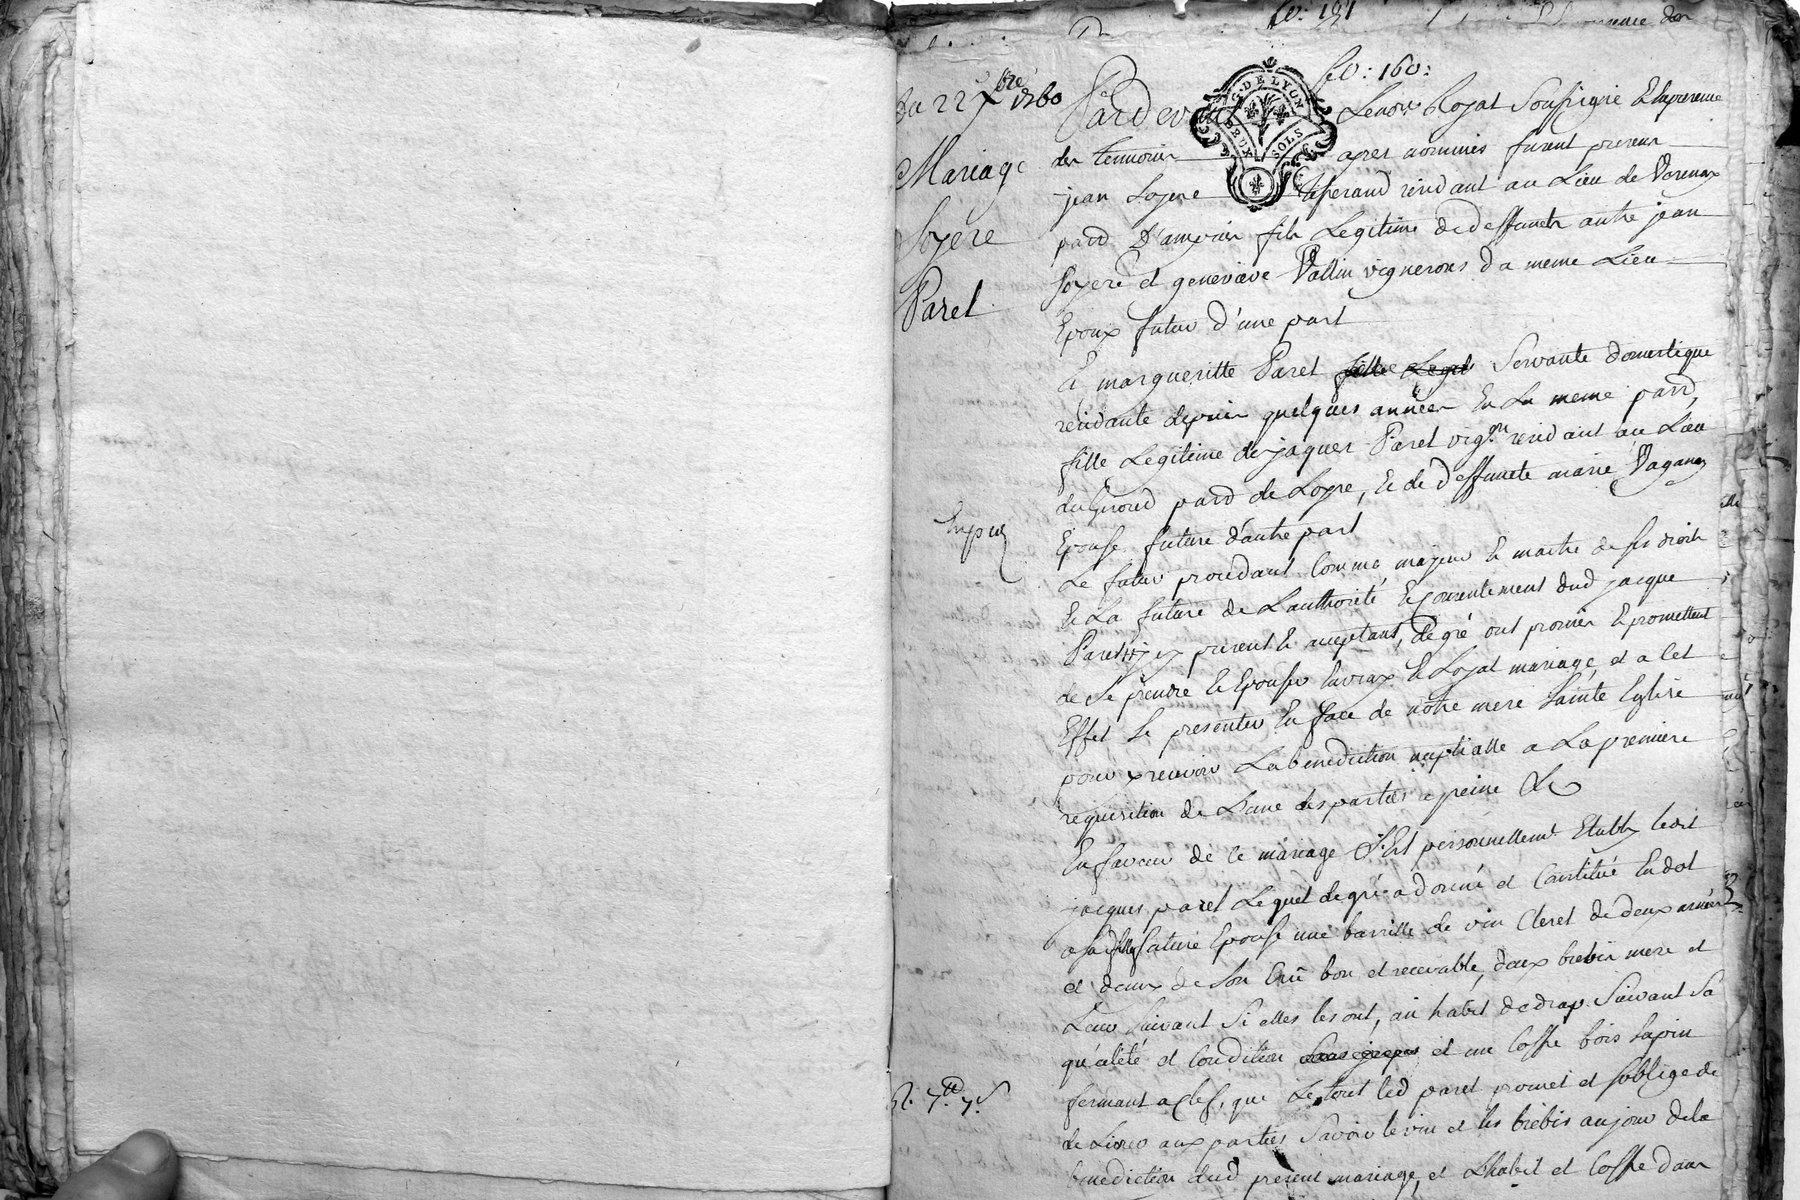 fo: 181
fo: 160:
Du 22 xbre 1760
Mariage
Soyere
Paret
Expié
G. DE LYON
DEUX SOLS
Pardevant Le no.re Royal soussigné Et la presence
des temoins apres nommés furent presens
jean Soyere residant au Lieu de Varenax
parr.
D'ampuis fils Legitime de deffuncts autre jean
Soyere et genevieve Vallin vignerons du meme Lieu
Epoux futur d'une part
Et margueritte Paret fille Legit Servante domestique
residante depuis quelques années En La meme parr.
fille Legitime de jaques Paret vig.on residant au Lieu
parr. de Loyre, Et de deffuncte marie Vaganay
Epouse future d'autre part
Le futur procedant Comme majeur Et maitre de ses droits
Et La future de L'authorité Et consentement dud jacque
Paret icy present Et acceptant, de gré ont promis Et promettent
de se prendre Et Epouser En vray Et Loyal mariage, et a Cet
Effet se presenter En face de notre mere Sainte Eglise
pour y recevoir La benediction nuptialle a La premiere
requisition de L'une des parties a peine &c
En faveur de ce mariage s'Est personnellemt Etably ledit
jacques paret Lequel de gré a donné et Constitué En dot
a sa fille future Epouse une barrille de vin Cleret de deux années
et deux de son Cru bon et recevable, deux brebis mere et
Leur suivant Si elles les ont, un habit de drap Suivant Sa
qualité et Condition et un Coffre bois sapin
fermant a clef, que Le tout led paret promet et s'oblige de
de Livrer aux parties Savoir le vin et les brebis au jour de la
benediction dud present mariage, et L'habit et Coffre dans
R. 7.tt 7.s